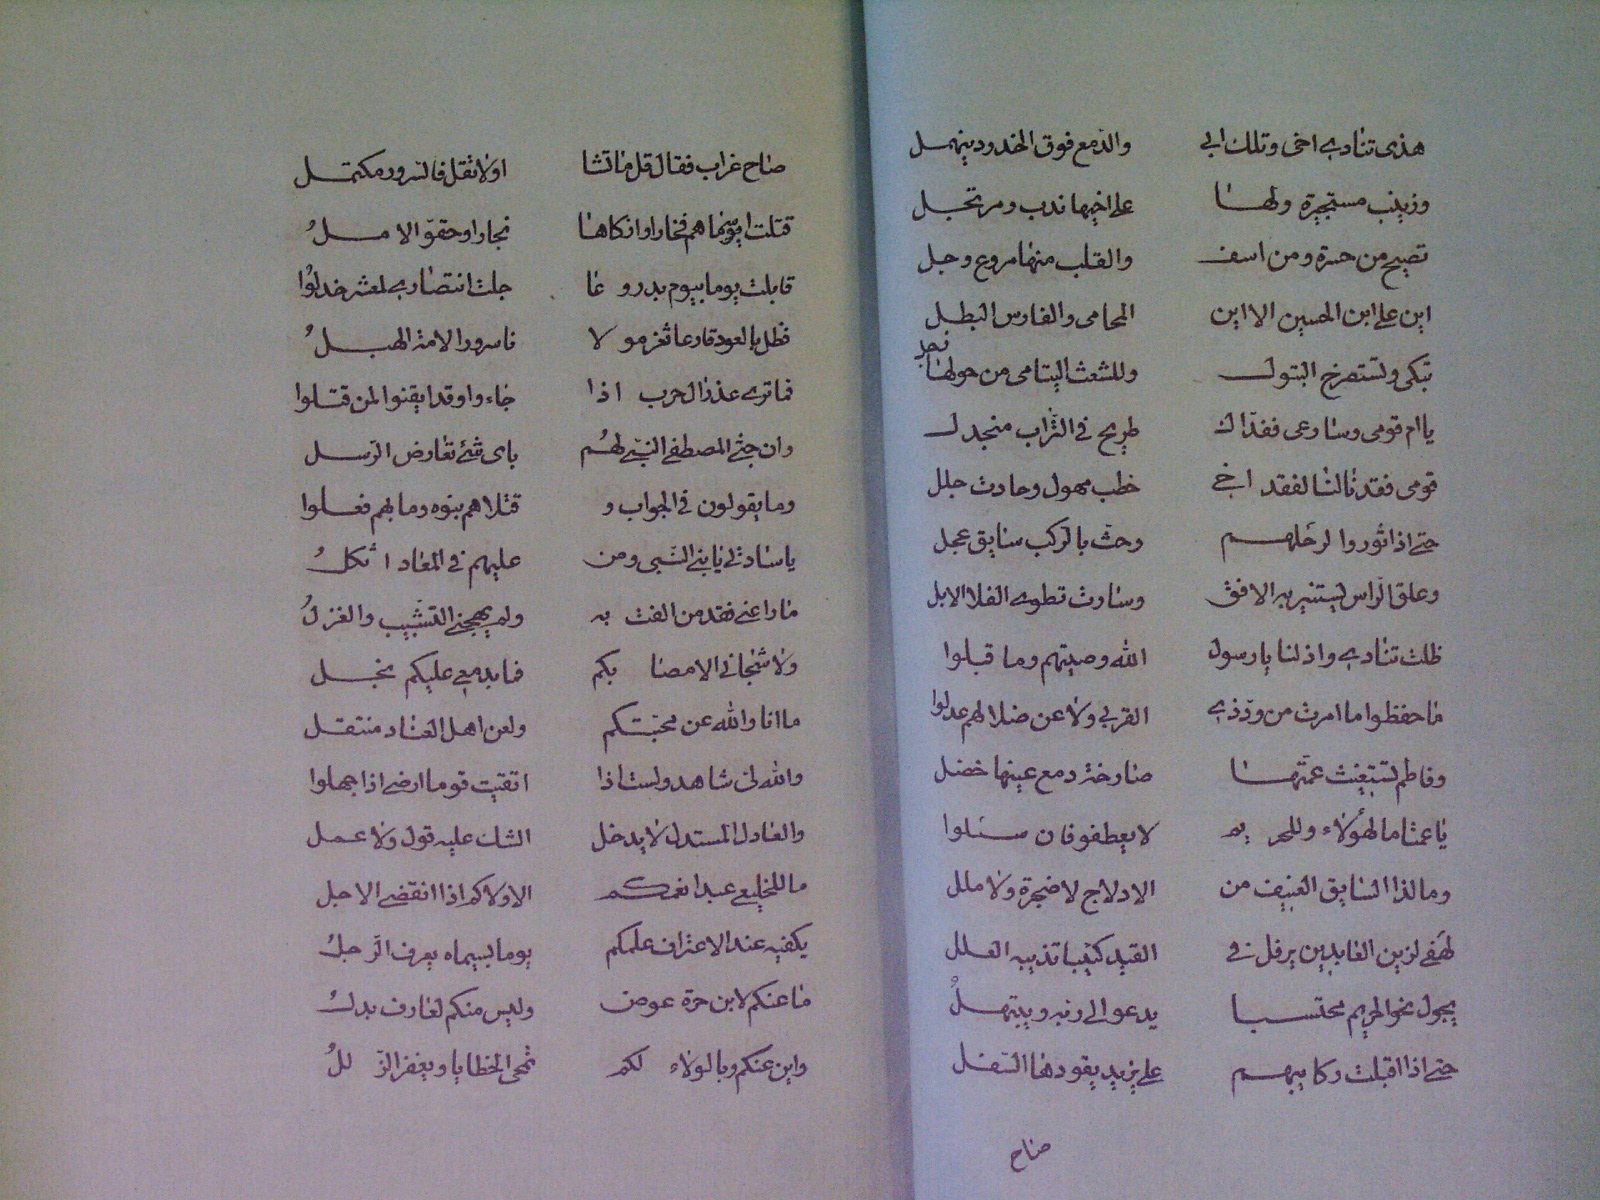 هذى تنادى اخى وتلك ابى والدمع فوق الخدود ينهمل
وزينب مستجيرة ولها على اخيها ندب ومرتجل
تصيح من حسرة ومن اسف والقلب منها مروع وجل
اين على ابن الحسين الا اين المحامى والفارس البطل
تبكى وتستصرخ البتول وللشعث اليتامى من حولها
ياام قومى وسارعى ففداك طريح فى التراب منجدل
قومى فقد نالنا لفقد اخى خطب مهول وحادث جلل
حتى اذا ثوروا لرحلهم وحث بالركب سايق عجل
وعلق الراس ليستنير به الافق وسارت تطوى الفلا الابل
ظلت تنادى واذلنا يارسول الله وصيتهم وما قبلوا
ما حفظوا ما امرت من ود ذى القربى ولا عن ضلالهم عدلوا
وفاطم تستغيث عمتها صارخة دمع عينها خضل
يا عمتا ما لهؤلاء وللحريم لا يعطفو فان سئلوا
وما لذا السايق العنيف من الادلاج لا ضجرة ولا ملل
لهفى لزين العابدين يرفل فى القيد كئيبا تذيبه العلل
يجول نحو الحريم محتسبا يدعو الى ربه ويبتهلُ
حتى اذا اقبلت ركايبهم على يزيد يقودها السفل
صاح
صاح غراب فقال قل ما تشا اولا تقل فالسرور مكتمل
قتلت ايوتما هم فخارا وانكاها نجارا وحقق الاملُ
قابلت يوما بيوم بدر وغا جلت انتصارى لمعشر خذلوا
فظل بالعود قارعا ثغر مولا ناسرورا لامه الهبلُ
فما ترى عذر ال حرب اذا جاءوا وقد ايقنوا لمن قتلوا
وان جثى المصطفى النبى لهم باى شئ تعارض الرسل
وما يقولون فى الجواب و قتلاهم بنوه وما بهم فعلوا
ياسادتى يا بنى النبى ومن عليهم فى المعاد اتكلُ
ما راعنى فقد من الفت به ولم يهجنى التشبيب والغزلُ
ولا شجانى الامصا بكم فما بدمعى عليكم بخل
ما انا والله عن محبتكم ولعن اهل العناد منتقل
والله لى شاهد ولست اذا اتقيت قوما ارضى اذا جهلوا
والعادل المستدل لا يدخل الشك عليه قول ولا عمل
ما للخليعى عبدا نعمكم الا ولاكم اذا انقضى الاجل
يكفيه عند الاعتراف علمكم يوما بسيماه يعرف الرجلُ
ما عنكم لابن حرة عوض وليس منكم لعارف بدلُ
واين عنكم وبالولاء لكم تمحى الخطايا ويغفر الزللُ